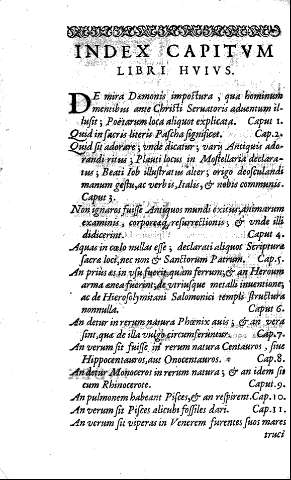 INDEX CAPITVM
LIBRI HVIVS.
DE mira Dæmonis impostura, qua hominum
mentibus ante Christi Seruatoris aduentum il-
lusit; Poëtarum loca aliquot explicata. Caput 1.
Quid in sacris literis Pascha significet. Cap.2.
Quid sit adorare; vnde dicatur; varij Antiquis ado-
randi ritus; Plauti locus in Mostellaria declara-
tus; Beati Iob illustratus alter; origo deosculandi
manum gestu, ac verbis, Italis, & nobis communis.
Caput 3.
Non ignaros fuisse Antiquos mundi exitus, animarum
examinis, corporeæq, resurrectionis; & vnde illi
didicerint. Caput 4.
Aquas in cœlo nullas esse; declarati aliquot Scripturæ
sacræ loci, nec non & Sanctorum Patrum. Cap.5.
An priùs æs in vsu fuerit, quàm ferrum; & an Heroum
arma ænea fuerint, de veriusque metalli inuentione,
ac de Hierosolymitani Salomonici templi structura
nonnulla. Caput 6.
An detur in rerum natura Phœnix auis; & an vera
sint, quæ de illa vulgò circumferuntur. Cap.7.
An verum sit fuisse in rerum natura Centauros, siue
Hippocentauros, aut Onocentauros. Cap.8.
An detur Monoceros in rerum natura; & an idem sit
cum Rhinocerote. Caput.9.
An pulmonem habeant Pisces, & an respirent. Cap.10.
An verum sit Pisces alicubi fossiles dari. Cap.11.
An verum sit viperas in Venerem furentes suos mares
truci